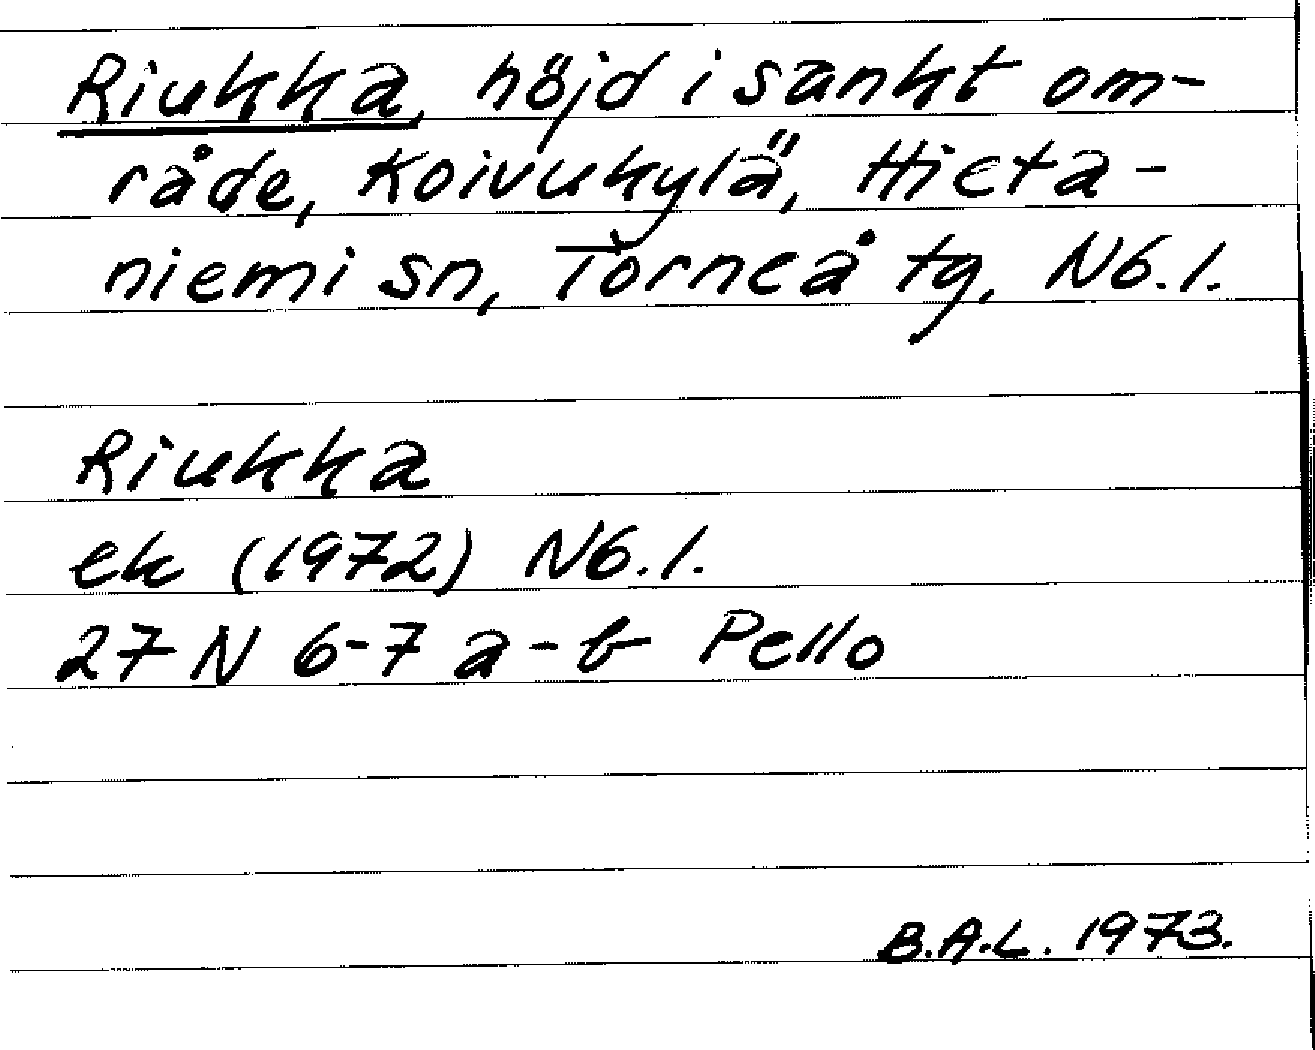 Riukka, höjd i sankt om-
råde, Koivukylä, Hieta-
niemi sn, Torneå tg, N6.1.
Riukka
ek (1972) N6.1.
27 N 6-7 a-b Pello
B.A.L. 1973.